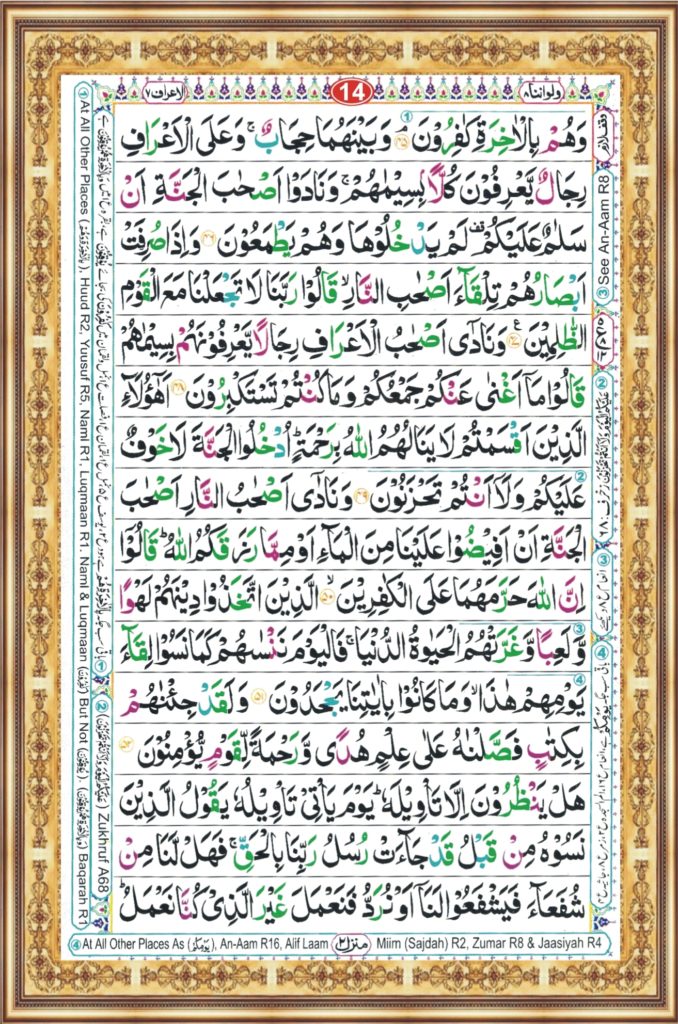 ولواننا ۸
14
الاعراف ۷
وَهُمْ بِالْاٰخِرَةِ كٰفِرُوْنَ ۘ ۝۴۵ وَبَيْنَهُمَا حِجَابٌ ۚ وَعَلَى الْاَعْرَافِ
رِجَالٌ يَّعْرِفُوْنَ كُلًّا ۢ بِسِيْمٰىهُمْ ۚ وَنَادَوْا اَصْحٰبَ الْجَنَّةِ اَنْ
سَلٰمٌ عَلَيْكُمْ ۫ لَمْ يَدْخُلُوْهَا وَهُمْ يَطْمَعُوْنَ ۝۴۶ وَاِذَا صُرِفَتْ
اَبْصَارُهُمْ تِلْقَآءَ اَصْحٰبِ النَّارِ ۙ قَالُوْا رَبَّنَا لَا تَجْعَلْنَا مَعَ الْقَوْمِ
الظّٰلِمِيْنَ ۝۴۷ وَنَادٰۤى اَصْحٰبُ الْاَعْرَافِ رِجَالًا يَّعْرِفُوْنَهُمْ بِسِيْمٰىهُمْ
قَالُوْا مَاۤ اَغْنٰى عَنْكُمْ جَمْعُكُمْ وَمَا كُنْتُمْ تَسْتَكْبِرُوْنَ ۝۴۸ اَهٰٓؤُلَآءِ
الَّذِيْنَ اَقْسَمْتُمْ لَا يَنَالُهُمُ اللّٰهُ بِرَحْمَةٍ ؕ اُدْخُلُوا الْجَنَّةَ لَا خَوْفٌ
عَلَيْكُمْ وَلَاۤ اَنْتُمْ تَحْزَنُوْنَ ۝۴۹ وَنَادٰۤى اَصْحٰبُ النَّارِ اَصْحٰبَ
الْجَنَّةِ اَنْ اَفِيْضُوْا عَلَيْنَا مِنَ الْمَآءِ اَوْ مِمَّا رَزَقَكُمُ اللّٰهُ ؕ قَالُوْۤا
اِنَّ اللّٰهَ حَرَّمَهُمَا عَلَى الْكٰفِرِيْنَ ۙ ۝۵۰ الَّذِيْنَ اتَّخَذُوْا دِيْنَهُمْ لَهْوًا
وَّلَعِبًا وَّغَرَّتْهُمُ الْحَيٰوةُ الدُّنْيَا ۚ فَالْيَوْمَ نَنْسٰىهُمْ كَمَا نَسُوْا لِقَآءَ
يَوْمِهِمْ هٰذَا ۙ وَمَا كَانُوْا بِاٰيٰتِنَا يَجْحَدُوْنَ ۝۵۱ وَلَقَدْ جِئْنٰهُمْ
بِكِتٰبٍ فَصَّلْنٰهُ عَلٰى عِلْمٍ هُدًى وَّرَحْمَةً لِّقَوْمٍ يُّؤْمِنُوْنَ ۝۵۲
هَلْ يَنْظُرُوْنَ اِلَّا تَاْوِيْلَهٗ ؕ يَوْمَ يَاْتِيْ تَاْوِيْلُهٗ يَقُوْلُ الَّذِيْنَ
نَسُوْهُ مِنْ قَبْلُ قَدْ جَآءَتْ رُسُلُ رَبِّنَا بِالْحَقِّ ۚ فَهَلْ لَّنَا مِنْ
شُفَعَآءَ فَيَشْفَعُوْا لَنَاۤ اَوْ نُرَدُّ فَنَعْمَلَ غَيْرَ الَّذِيْ كُنَّا نَعْمَلُ ؕ
وقف لازم
③ See An-Aam R8
① At All Other Places Huud R2, Yuusuf R5, Naml R1, Luqmaan R1. Naml & Luqmaan But Not Baqarah R1
② Zukhruf A68
④ At All Other Places As (يومكم), An-Aam R16, Alif Laam منزل ۲ Miim (Sajdah) R2, Zumar R8 & Jaasiyah R4